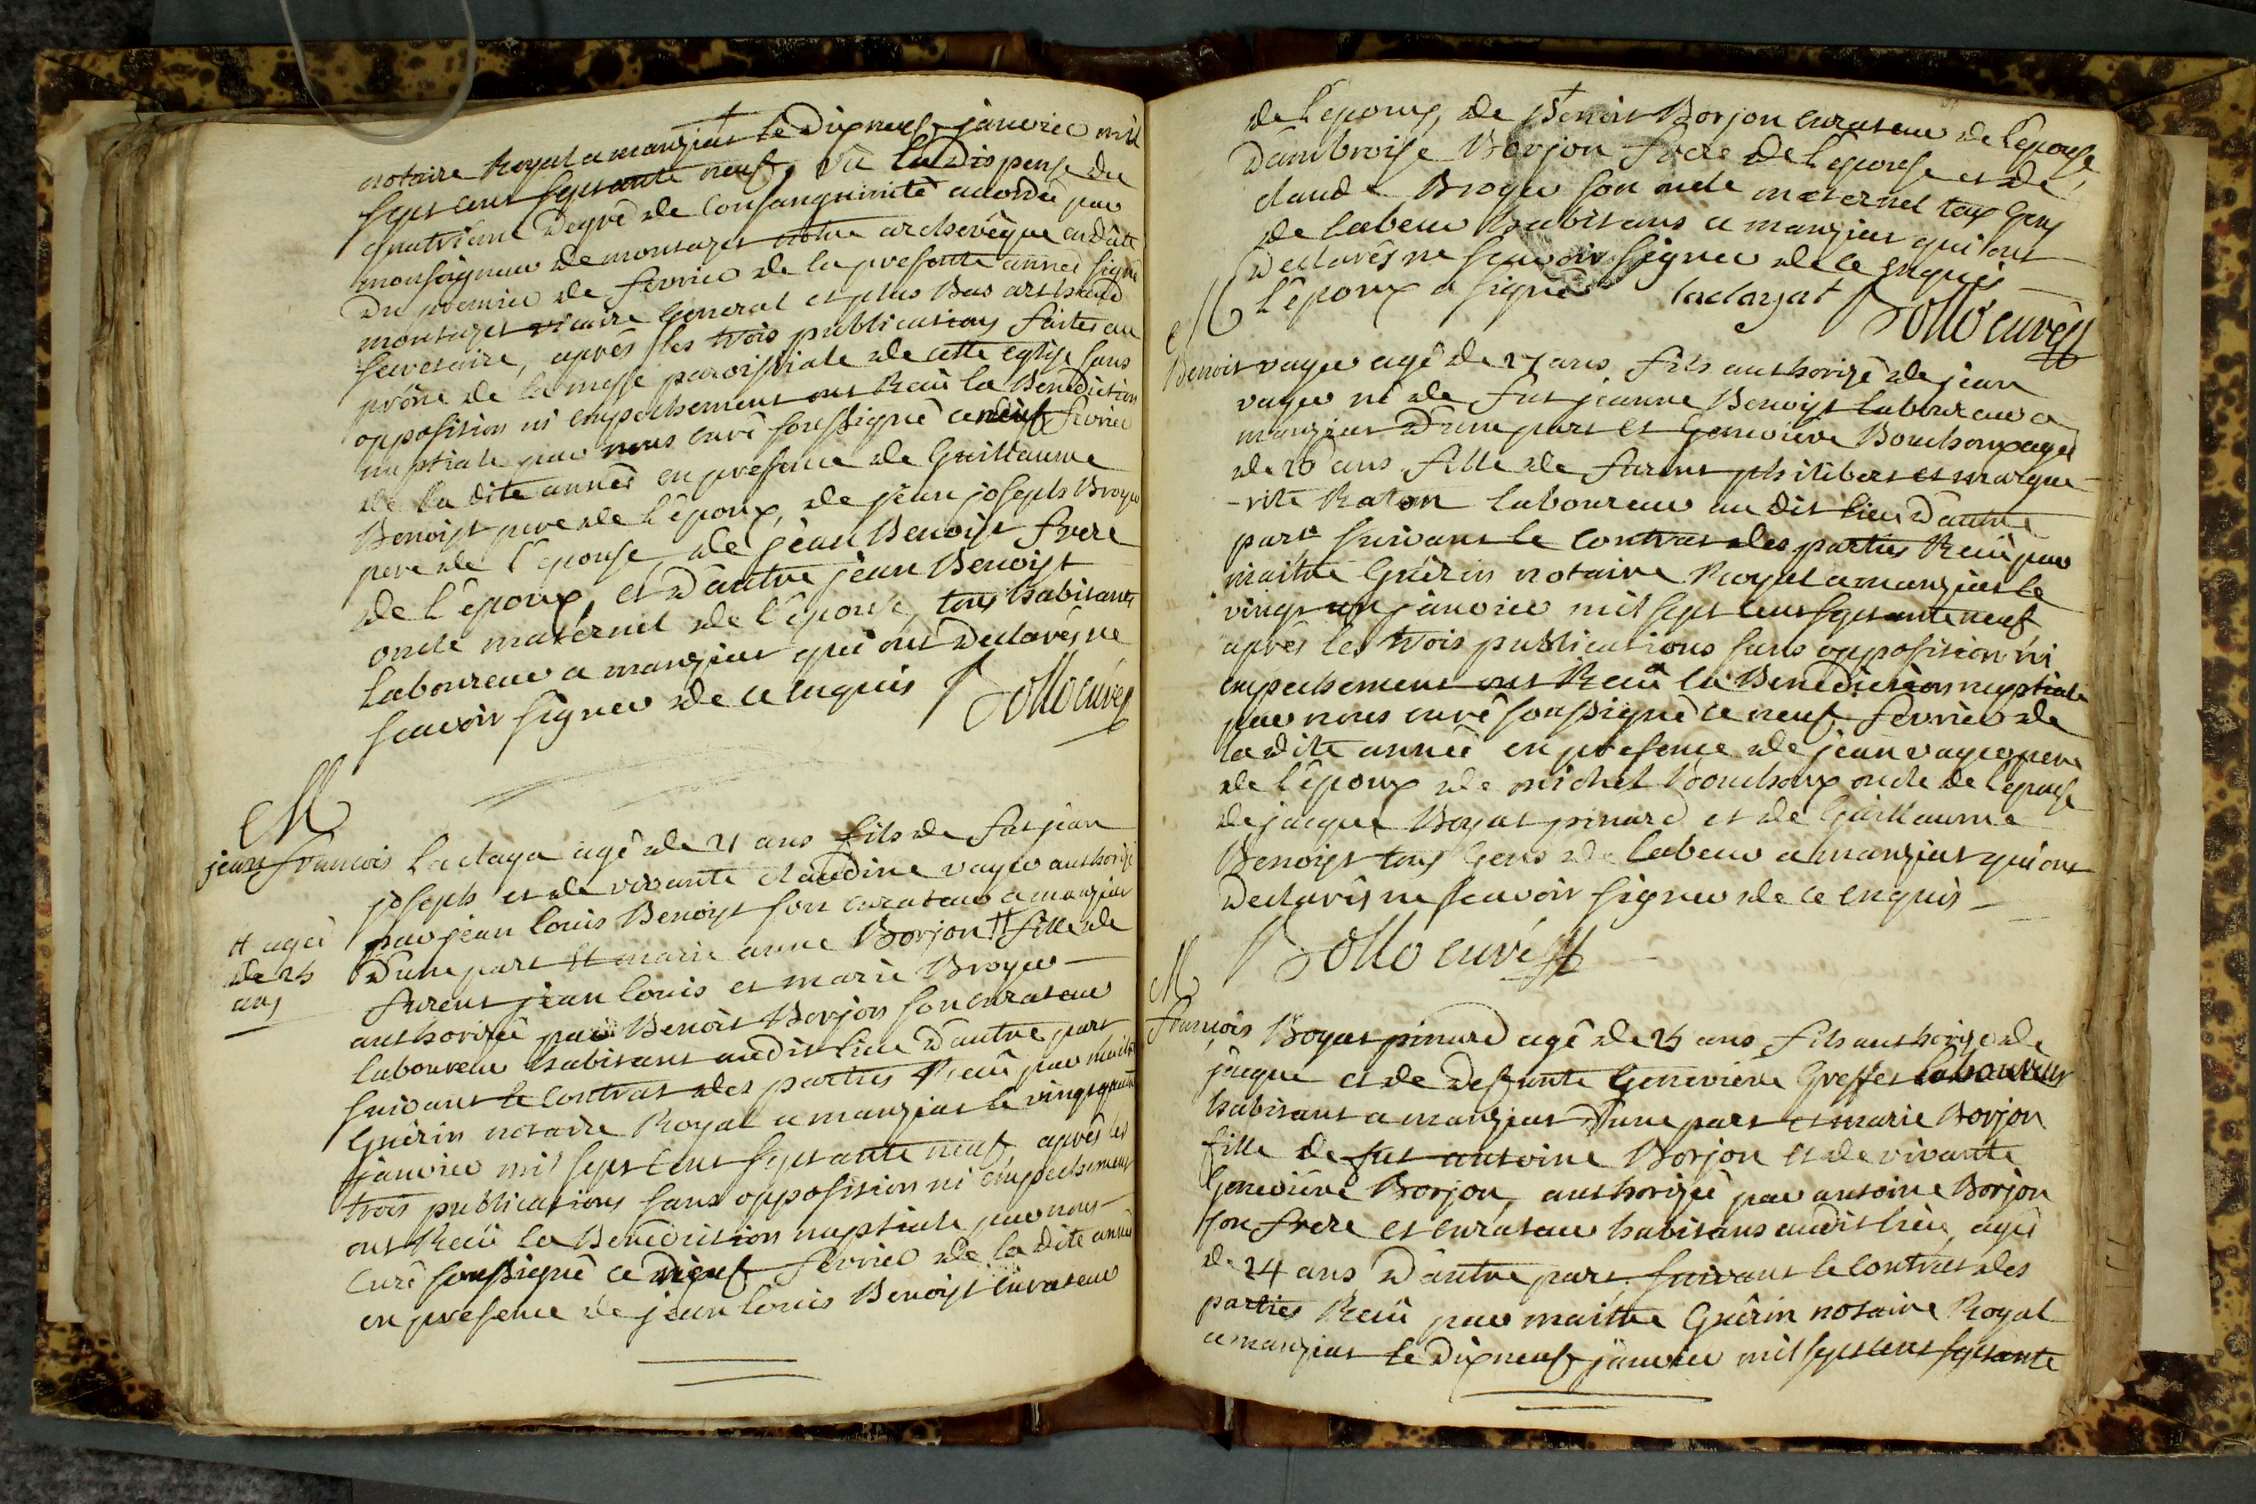 notaire Royal a manziat le dixneuf janvier mil
sept cent septante neuf, vû la dispense du
quatrieme degré de Consanguinité accordée par
monseigneur de montazet notre archevêque en date
du premier de fevrier de la presente année signé
montazet vicaire General et plus Bas
secretaire, aprés les trois publications faites au
prône de la messe paroissiale de cette eglise sans
opposition ni empechement ont Reçû la Benediction
nuptiale par nous curé soussigné ce neuf fevrier
de la dite année en presence de Guillaume
Benoist pere de l'époux, de jean joseph Broyer
pere de l'epouse, de jean Benoist frere
de l'époux, et d'autre jean Benoist
oncle maternel de l'épouse, tous habitants
laboureur a manziat qui ont declarés ne
scavoir signer de ce enquis Bollo curé
M
jean francois Laclaya agé de 21 ans fils de fut jean
joseph et de vivante claudine vayer authorisé
par jean louis Benoist son curateur a manziat
d'une part Et marie anne Borjon # fille de
# agée
de 25
ans
furent jean louis et marie Broyer
authorisée par Benoit Borjon son curateur
laboureur habitant audit lieu d'autre part
suivant le contrat des parties Reçû par maitre
Guérin notaire Royal a manziat le
janvier mil sept cent septante neuf, aprés les
trois publications sans opposition ni empechement
ont Reçû la Benediction nuptiale par nous
Curé soussigné ce neuf fevrier de la dite année
en presence de jean louis Benoist curateur
de l'epoux, de Benoit Borjon curateur de l'epouse,
d'ambroise Borjon frere de l'epouse et de
claude Broyer son oncle maternel tous Gens
de labeur habitans a manziat qui ont
declarés ne scavoir signer de ce enquis
l'époux a signé laclayat Bollo curé
M
Benoit vayer agé de 27 ans fils authorizé de jean
vayer et de fut jeanne Benoist laboureur a
manziat d'une part et Genevieve Bouchoux agée
de 20 ans fille de furent philibert et margue
-rite Raton laboureur au dit lieu d'autre
part suivant le contrat des parties Reçû par
maitre Guérin notaire Royal a manziat le
vingt un janvier mil sept cent septante neuf
aprés les trois publications sans opposition ni
empechement ont Reçû la Benediction nuptiale
par nous curé soussigné ce neuf fevrier de
la dite année en presence de jean vayer pere
de l'époux de michel Bouchoux oncle de l'epouse
de jacque Boyat pinard et de Guillaume
Benoist tous Gens de labeur a manziat qui ont
declarés ne scavoir signer de ce enquis
Bollo curé
M
francois Boyat pinard agé de 25 ans fils authorizé de
jacque et de defunte Genevieve Greffet laboureur
habitant a manziat d'une part et marie Borjon
fille de fut antoine Borjon et de vivante
Genevieve Borjon, authorizée par antoine Borjon
son frere et curateur habitans audit lieu, agée
de 24 ans d'autre part, suivant le contrat des
parties Reçû par maitre Guérin notaire Royal
a manziat le dixneuf janvier mil sept cent septante